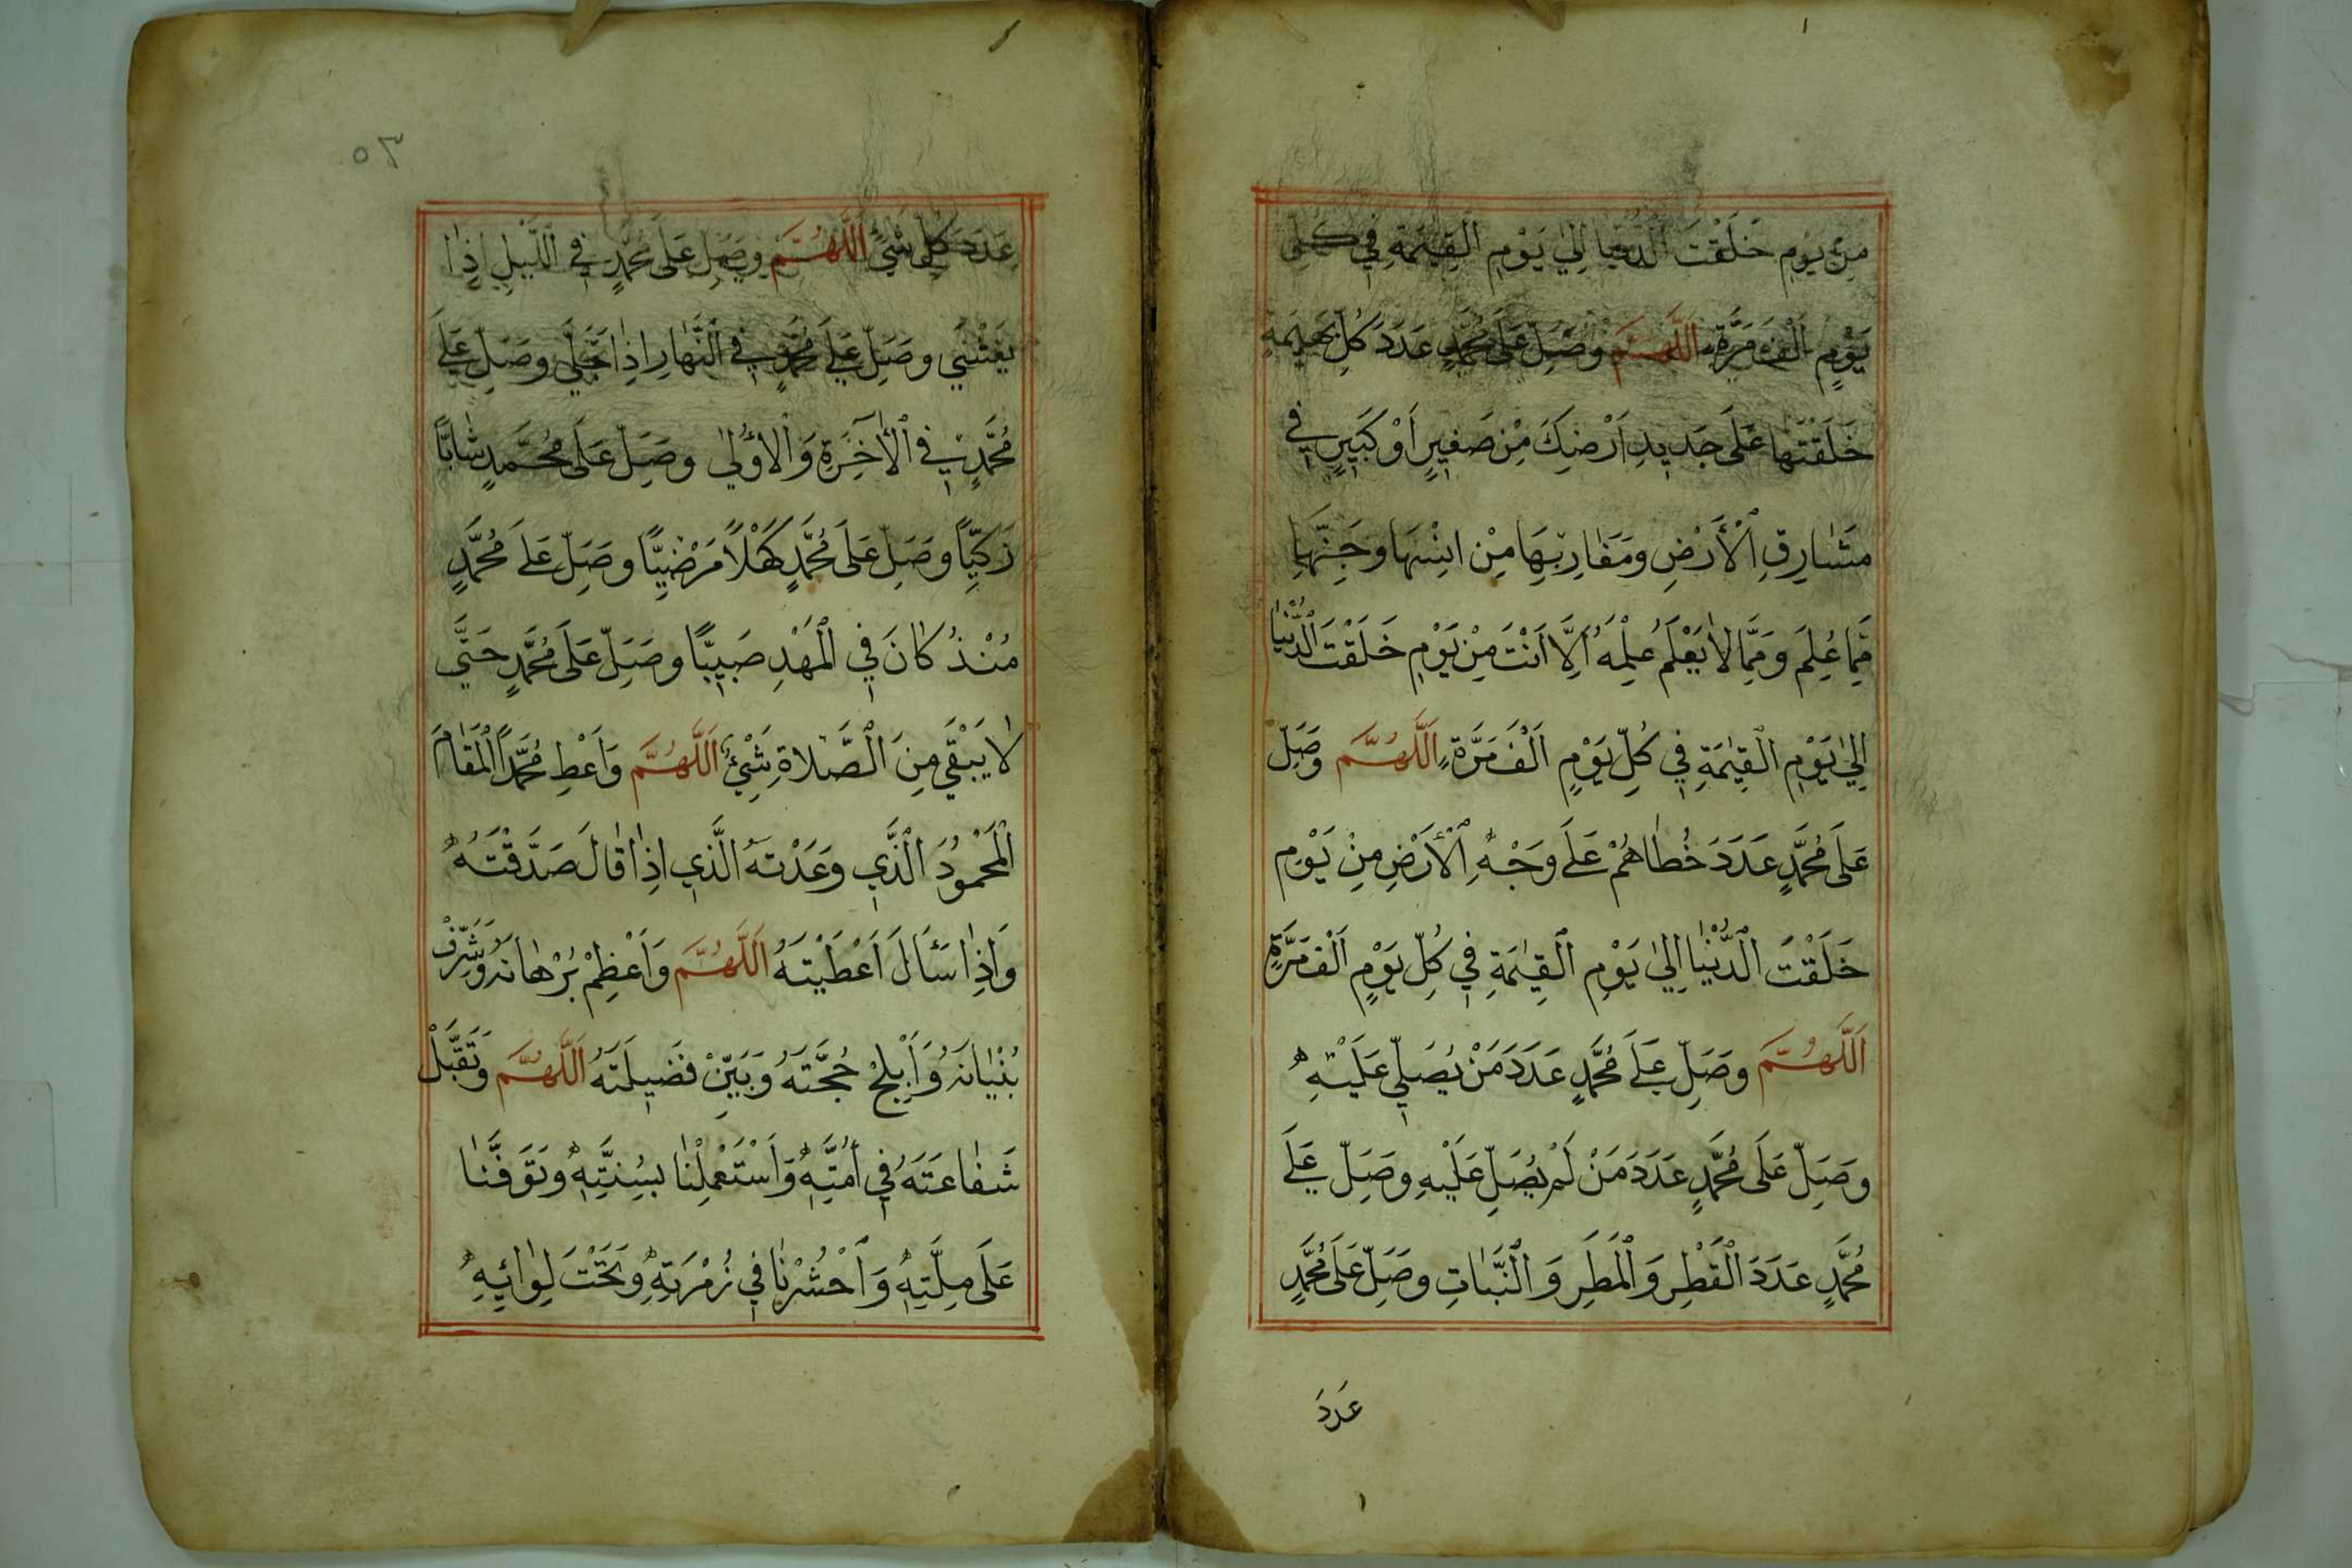 مِنْ يَوْمِ خَلَقْتَ الدُّنْيَا اِلىٰ يَوْمِ الْقِيٰمَةِ فِي كُلِّ
يَوْمٍ اَلْفَ مَرَّةٍ اَللّٰهُمَّ وَصَلِّ عَلَى مُحَمَّدٍ عَدَدَ كُلِّ بَهِيمَةٍ
خَلَقْتَهَا عَلَى جَدِيدِ اَرْضِكَ مِنْ صَغِيرٍ اَوْ كَبِيرٍ فِي
مَشَارِقِ الْأَرْضِ وَمَغَارِبِهَا مِنْ اِنْسِهَا وَجِنِّهَا
مِمَّا عُلِمَ وَمِمَّا لَا يَعْلَمُ عِلْمَهُ اِلَّا اَنْتَ مِنْ يَوْمِ خَلَقْتَ الدُّنْيَا
اِلىٰ يَوْمِ الْقِيٰمَةِ فِي كُلِّ يَوْمٍ اَلْفَ مَرَّةٍ اَللّٰهُمَّ وَصَلِّ
عَلَى مُحَمَّدٍ عَدَدَ خُطَاهُمْ عَلَى وَجْهِ الْأَرْضِ مِنْ يَوْمِ
خَلَقْتَ الدُّنْيَا اِلىٰ يَوْمِ الْقِيٰمَةِ فِي كُلِّ يَوْمٍ اَلْفَ مَرَّةٍ
اَللّٰهُمَّ وَصَلِّ عَلَى مُحَمَّدٍ عَدَدَ مَنْ يُصَلِّي عَلَيْهِ
وَصَلِّ عَلَى مُحَمَّدٍ عَدَدَ مَنْ لَمْ يُصَلِّ عَلَيْهِ وَصَلِّ عَلَى
مُحَمَّدٍ عَدَدَ الْقَطْرِ وَالْمَطَرِ وَالنَّبَاتِ وَصَلِّ عَلَى مُحَمَّدٍ
عَدَدَ
٥٣
عَدَدَ كُلِّ شَيْءٍ اَللّٰهُمَّ وَصَلِّ عَلَى مُحَمَّدٍ فِي اللَّيْلِ اِذَا
يَغْشَى وَصَلِّ عَلَى مُحَمَّدٍ فِي النَّهَارِ اِذَا تَجَلَّى وَصَلِّ عَلَى
مُحَمَّدٍ فِي الْأٰخِرَةِ وَالْأُولىٰ وَصَلِّ عَلَى مُحَمَّدٍ شَابًّا
زَكِيًّا وَصَلِّ عَلَى مُحَمَّدٍ كَهْلًا مَرْضِيًّا وَصَلِّ عَلَى مُحَمَّدٍ
مُنْذُ كَانَ فِي الْمَهْدِ صَبِيًّا وَصَلِّ عَلَى مُحَمَّدٍ حَتَّى
لَا يَبْقَى مِنَ الصَّلَاةِ شَيْءٌ اَللّٰهُمَّ وَاَعْطِ مُحَمَّدًا الْمَقَامَ
الْمَحْمُودَ الَّذِي وَعَدْتَهُ الَّذِي اِذَا قَالَ صَدَّقْتَهُ
وَاِذَا سَئَالَ اَعْطَيْتَهُ اَللّٰهُمَّ وَاَعْظِمْ بُرْهَانَهُ وَشَرِّفْ
بُنْيَانَهُ وَاَبْلِجْ حُجَّتَهُ وَبَيِّنْ فَضِيلَتَهُ اَللّٰهُمَّ وَتَقَبَّلْ
شَفَاعَتَهُ فِي اُمَّتِهِ وَاسْتَعْمِلْنَا بِسُنَّتِهِ وَتَوَفَّنَا
عَلَى مِلَّتِهِ وَاحْشُرْنَا فِي زُمْرَتِهِ وَتَحْتَ لِوَائِهِ